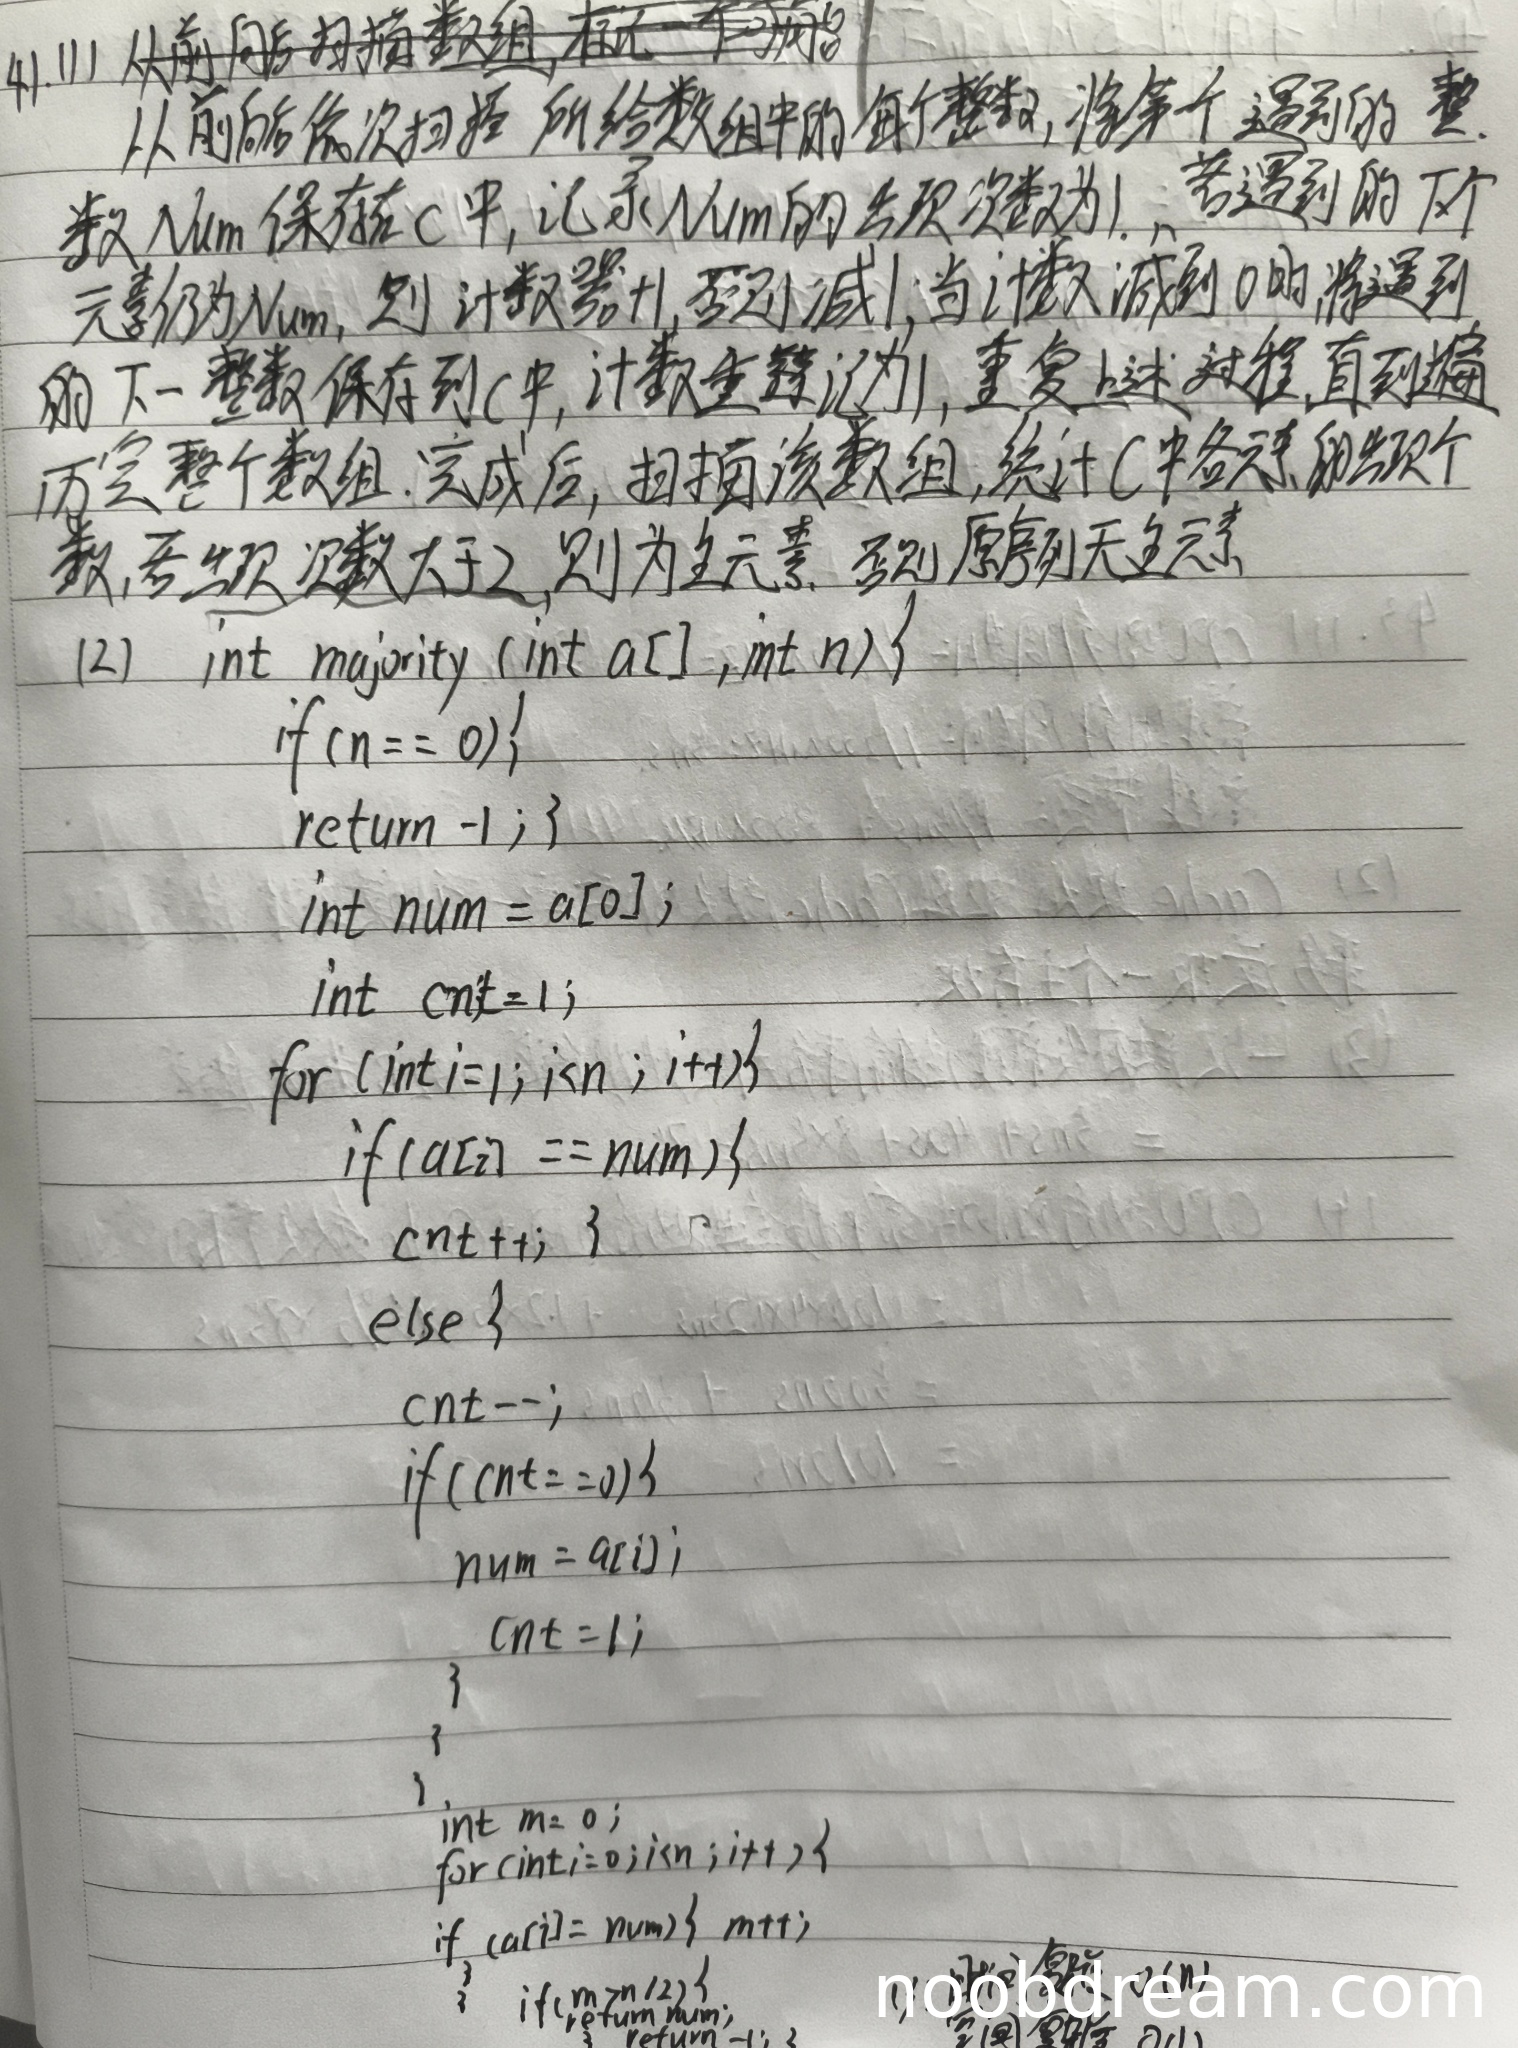 41.(1) 从前向后扫描数组,标记一个可能
从前向后依次扫描所给数组中的每个整数,将第个遇到的整.
数Num保存在C中,记录Num的出现次数为1.,若遇到的下个
元素仍为Num,则计数器+1,否则减1;当计数减到0时,将遇到
的下一整数保存到C中,计数重新记为1,重复上述过程,直到遍
历完整个数组.完成后,扫描该数组,统计C中各元素的出现个
数,若出现次数大于2,则为主元素.否则原序列无主元素
(2) int majority (int a[] ,int n){
if(n== 0){
return -1;}
int num = a[0];
int cnt=1;
for (int i=1;i<n ; i++){
if(a[i] ==num){
cnt++; }
else {
cnt--;
if(cnt==0){
num = a[i];
cnt =1;
}
}
}
int m= 0;
for(int i=0;i<n ;i++){
if (a[i]= num){ m++;
}
} if(m>n/2){
return num;
} return -1; }
时间复杂度 O(n)
空间复杂度 O(1)
noobdream.com